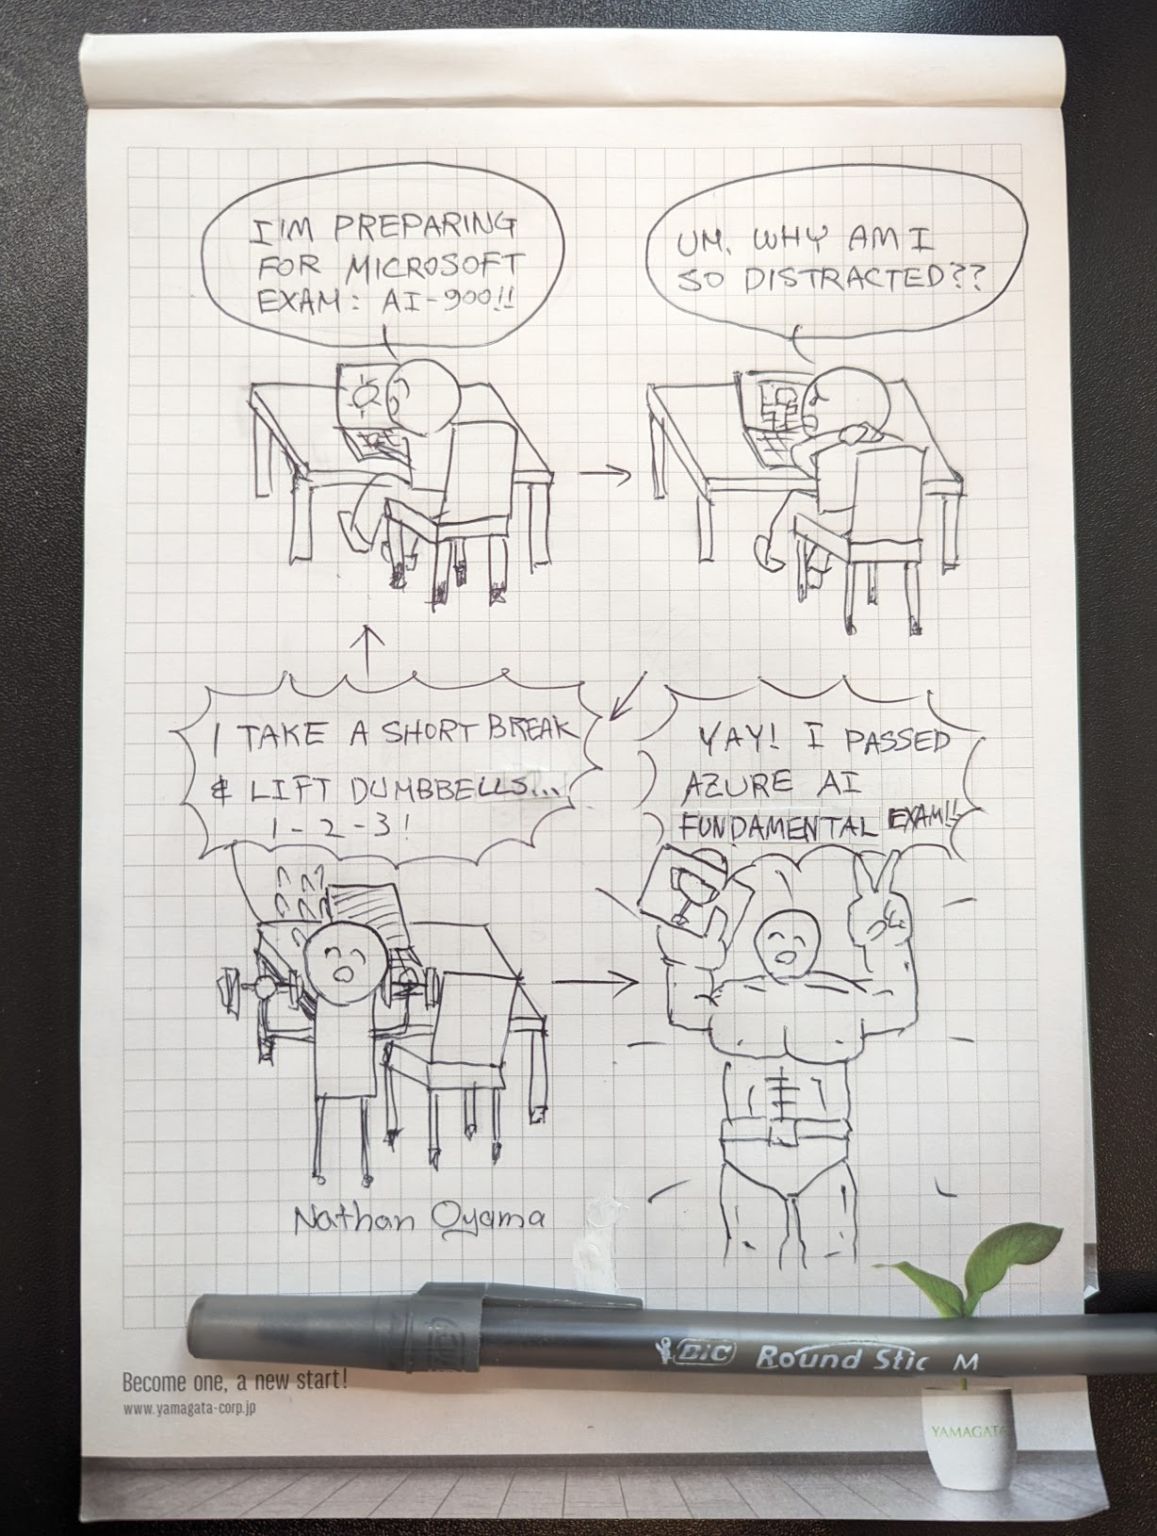 I'M PREPARING
FOR MICROSOFT
EXAM: AI-900!!
UM, WHY AM I
SO DISTRACTED??
I TAKE A SHORT BREAK
& LIFT DUMBBELLS...
1-2-3!
YAY! I PASSED
AZURE AI
FUNDAMENTAL EXAM!!
Nathan Oyama
BIC Round Stic M
Become one, a new start!
www.yamagata-corp.jp
YAMAGATA